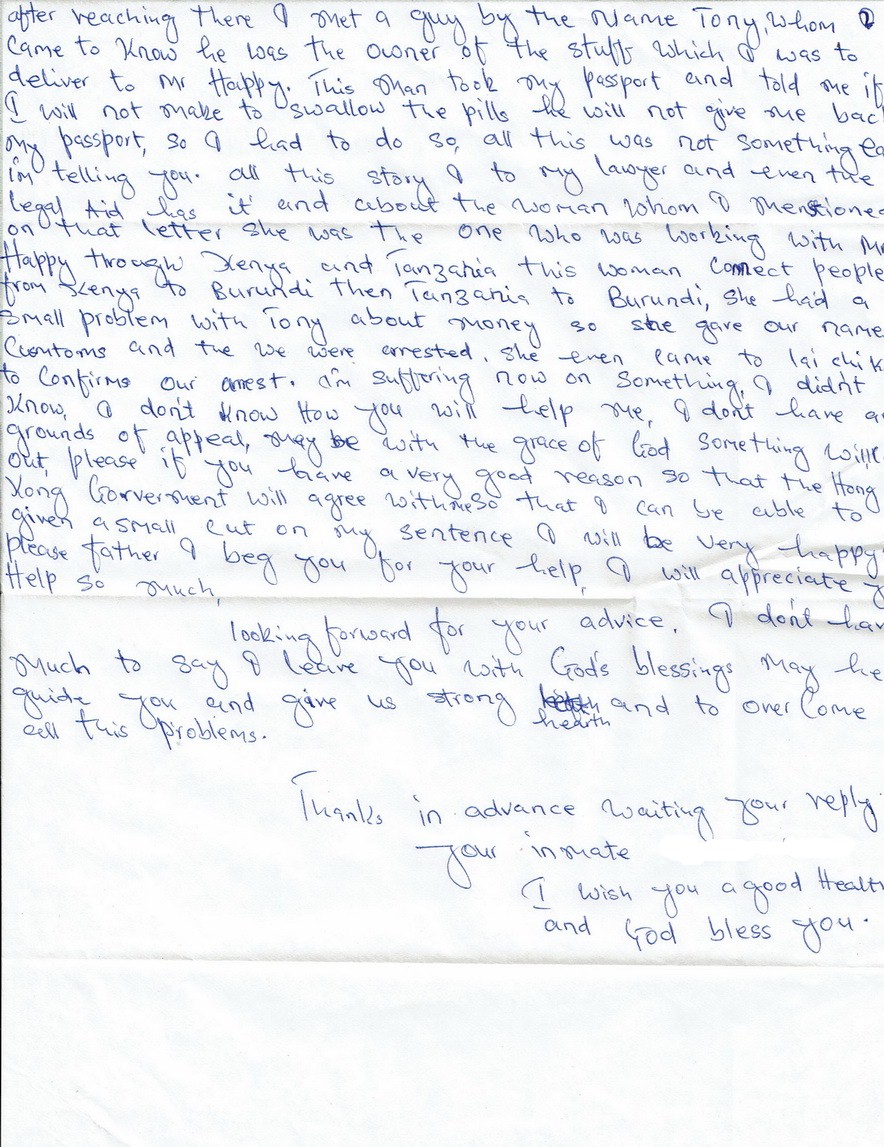 after reaching there I met a guy by the Name Tony, whom I
Came to Know he was the owner of the stuff which I was to
deliver to Mr Happy. This man took my passport and told me if
I will not make to swallow the pills he will not give me bac
my passport, so I had to do so, all this was not something ea
i'm telling you. all this story I to my lawyer and even the
legal Aid has it and about the woman whom I mentioned
on that letter she was the one who was working with Mr
Happy through Kenya and Tanzania this woman Connect people
from Kenya to Burundi then Tanzania to Burundi, she had a
small problem with Tony about money so she gave our name
Cuontoms and the we were arrested. she even came to lai chik
to Confirms our arrest. i'm suffering now on something, I didn't
Know, I don't know How you will help me, I don't have a
grounds of appeal, may be with the grace of God something will
out, please if you have a very good reason so that the Hong
Kong Gorverment will agree with me so that I can be able to
given a small cut on my sentence I will be very happy
please father I beg you for your help, I will appreciate y
Help so much,
looking forward for your advice. I don't hav
much to say I leave you with God's blessings may he
guide you and give us strong hearth and to over Come
all this problems.
Thanks in advance waiting your reply
your inmate
I wish you a good Health
and God bless you.